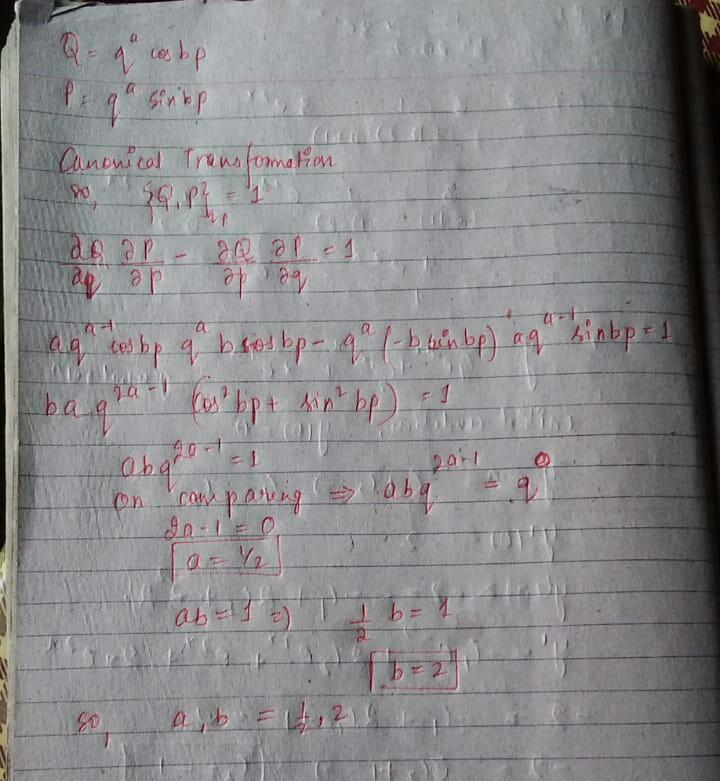 Q = q^a cos bp
P = q^a sin bp
Canonical Transformation
so, {Q, P}_qp = 1
∂Q/∂q ∂P/∂p − ∂Q/∂p ∂P/∂q = 1
aq^(a-1) cos bp q^a b cos bp − q^a (−b sin bp) aq^(a-1) sin bp = 1
ba q^(2a-1) (cos² bp + sin² bp) = 1
abq^(2a-1) = 1
on comparing ⇒ abq^(2a-1) = q^0
2a-1 = 0
a = 1/2
ab = 1 ⇒ 1/2 b = 1
b = 2
so, a, b = 1/2, 2